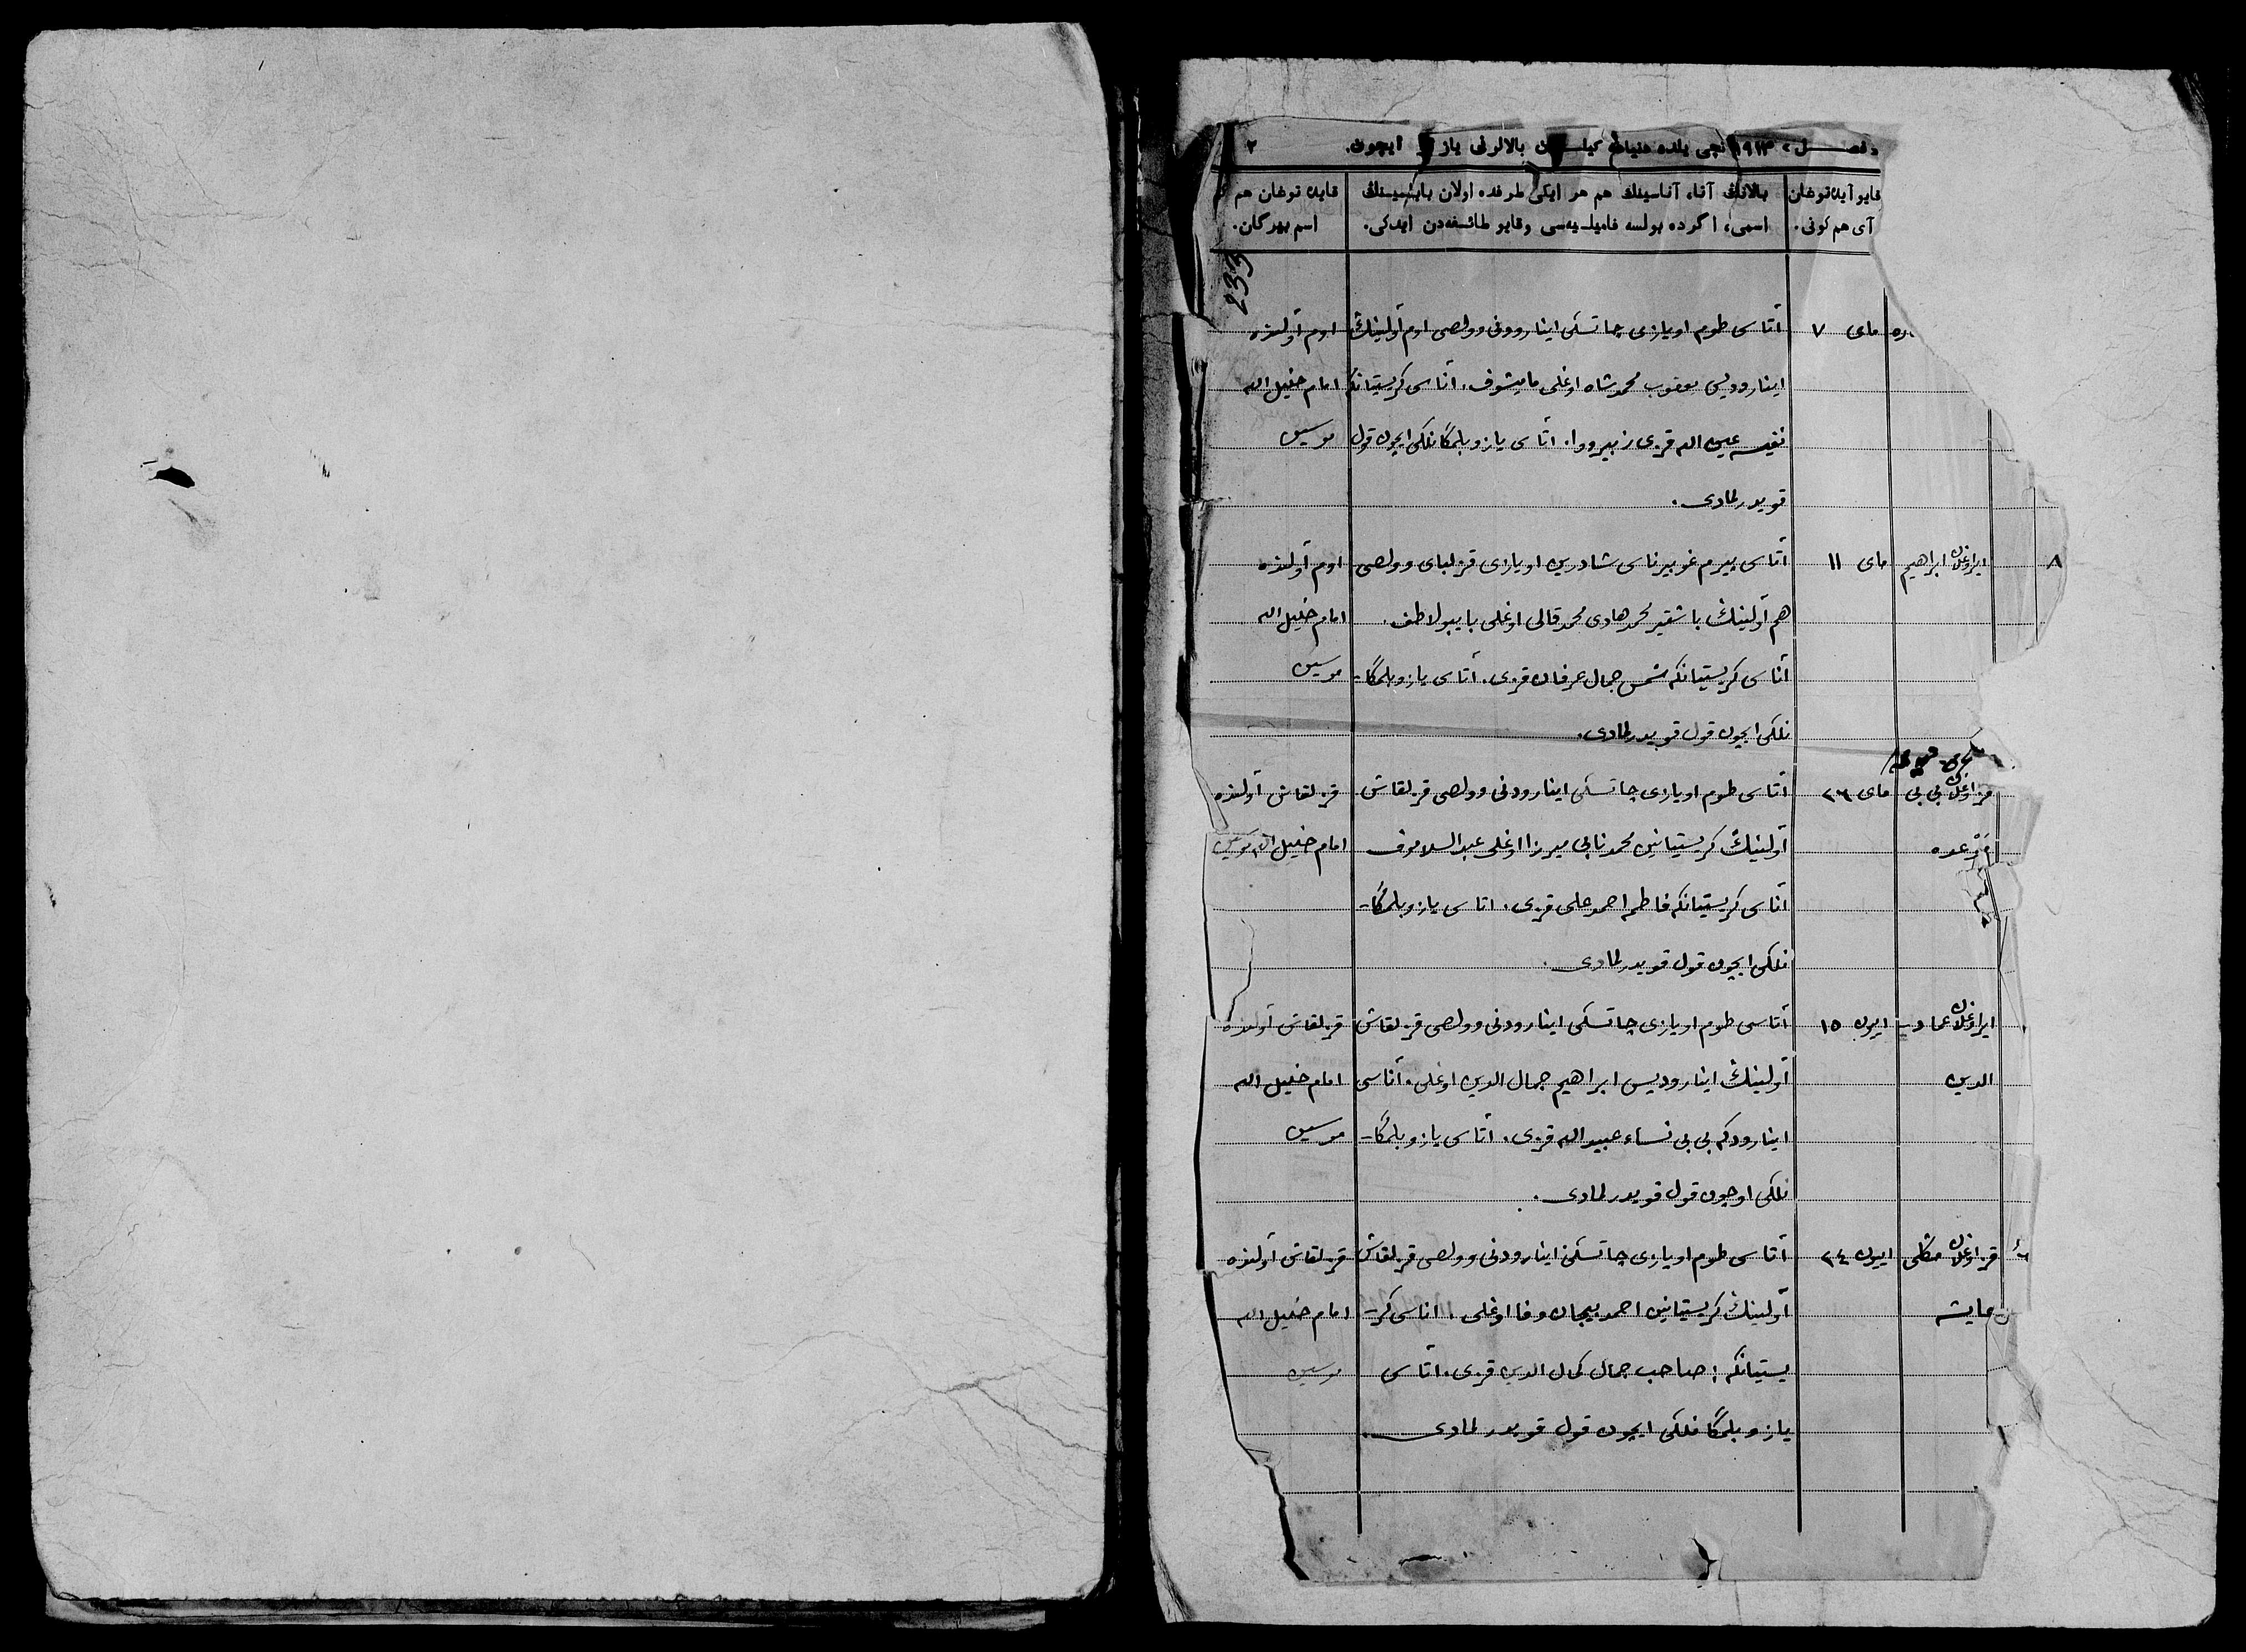 فصـــل، ١٩١٣ نچی یلده دنیاغه کیلـــن بالالرنی یازو ایچون. ٢
قایو آیده توغان
آی هم کونی.
بالانڭ آتا، آناسینڭ هم هر ایکی طرفده اولان بابلسینڭ
اسمی، اگرده بولسه فامیلـیه‌سی وقایو طائـفه‌دن ایدکی.
قایده توغان هم
اسم بیرگان.
233
مای ٧
آتاسی طوم اویازی چاتسکی اینارودنی وولصی اوم آولینڭ
اینارودیس یعقوب محمدشاه اوغلی مامیشوف. آناسی کریستیانکه
نفیسه عین الله قزی زبیرووا. آتاسی یازو بلمگانلکی ایچون قول
قویدرلمادی.
اوم آولنده
امام خلیل الله
موسین
٨
ایر اوغلان ابراهیم
مای ١١
آتاسی پیرم غوبیرناسی شادرین اویازی قزلبای وولصی
هم آولینڭ باشقیر محمدهادی محمدقالی اوغلی بایبولاطف.
آناسی کریستیانکه شمس جمال عرفان قزی. آتاسی یازو بلمگا-
نلکی ایچون قول قویدرلمادی.
اوم آولنده
امام خلیل الله
موسین
قز اوغلان بی بی
مای ٢٦
آتاسی طوم اویازی چاتسکی اینارودنی وولصی قزلقاش
آولینڭ کریستیانین محمدنابی میرزا اوغلی عبدالسلاموف
آناسی کریستیانکه فاطمه احمدعلی قزی. آتاسی یازو بلمگا-
نلکی ایچون قول قویدرلمادی.
قزلقاش آولنده
امام خلیل الله موسین
ایر اوغلان عماد
الدین
ایون ١٥
آتاسی طوم اویازی چاتسکی اینارودنی وولصی قزلقاش
آولینڭ اینارودیس ابراهیم جمال الدین اوغلی. آناسی
اینارودکه بی بی نساء عبید الله قزی. آتاسی یازو بلمگا-
نلکی اوچون قول قویدرلمادی.
قزلقاش آولنده
امام خلیل الله
موسین
قز اوغلان
عایشه
ایون ٢٤
آتاسی طوم اویازی چاتسکی اینارودنی وولصی قزلقاش
آولینڭ کریستیانین احمدبیجان وفا اوغلی. آناسی کر-
یستیانکه: صاحب جمال کمال الدین قزی. آتاسی
یازو بلمگانلکی ایچون قول قویدرلمادی.
قزلقاش آولنده
امام خلیل الله
موسین